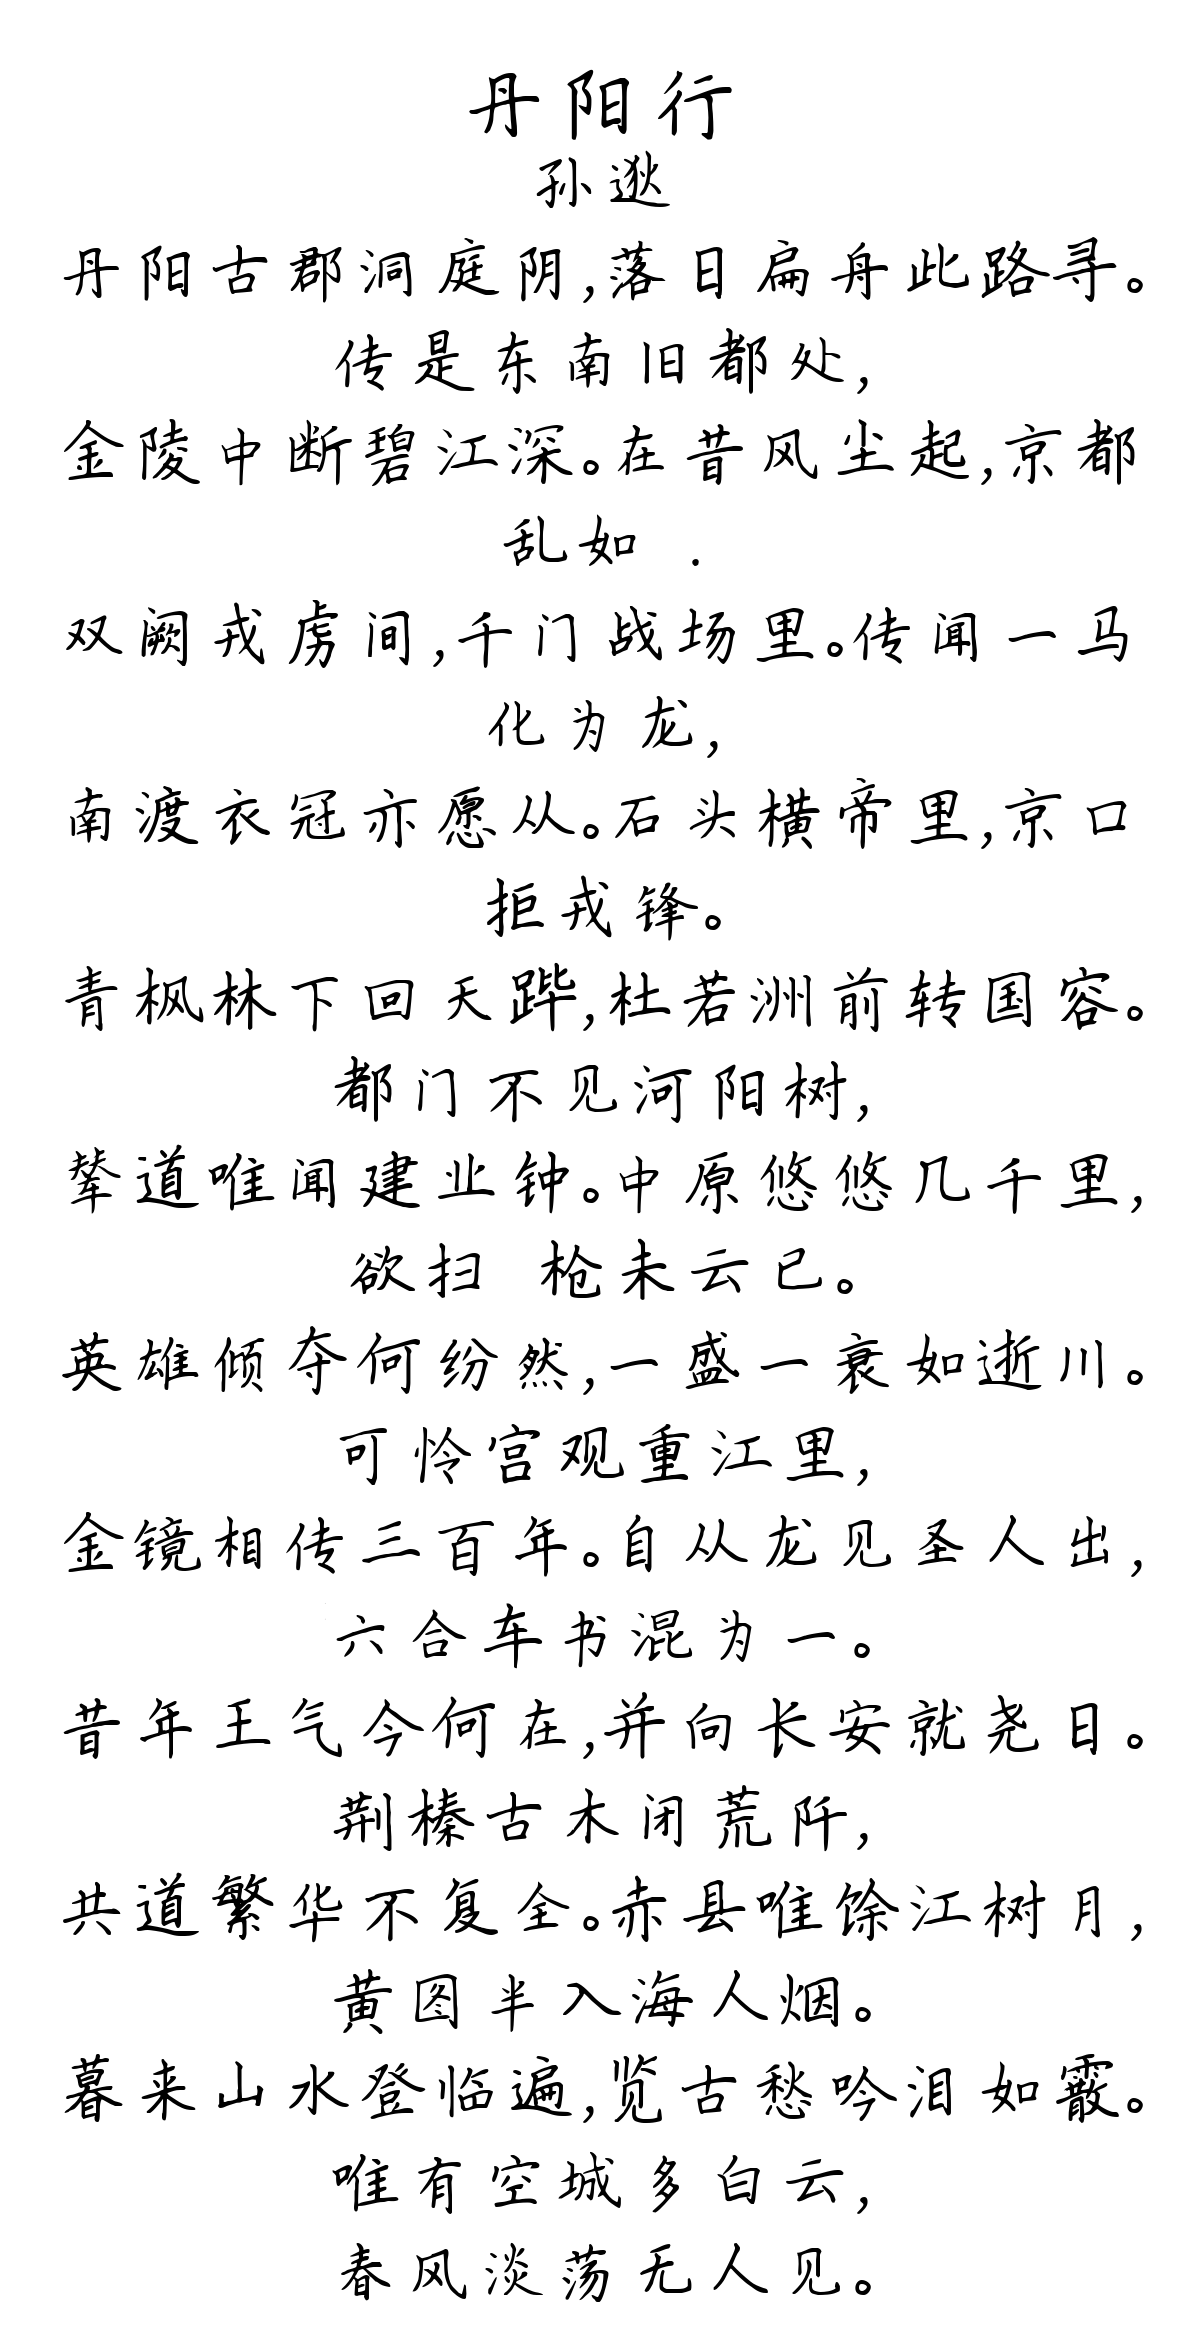 丹阳行
孙逖
丹阳古郡洞庭阴,落日扁舟此路寻。
传是东南旧都处,
金陵中断碧江深。在昔风尘起,京都
乱如 .
双阙戎虏间,千门战场里。传闻一马
化为龙,
南渡衣冠亦愿从。石头横帝里,京口
拒戎锋。
青枫林下回天跸,杜若洲前转国容。
都门不见河阳树,
辇道唯闻建业钟。中原悠悠几千里,
欲扫 枪未云已。
英雄倾夺何纷然,一盛一衰如逝川。
可怜宫观重江里,
金镜相传三百年。自从龙见圣人出,
六合车书混为一。
昔年王气今何在,并向长安就尧日。
荆榛古木闭荒阡,
共道繁华不复全。赤县唯馀江树月,
黄图半入海人烟。
暮来山水登临遍,览古愁吟泪如霰。
唯有空城多白云,
春风淡荡无人见。